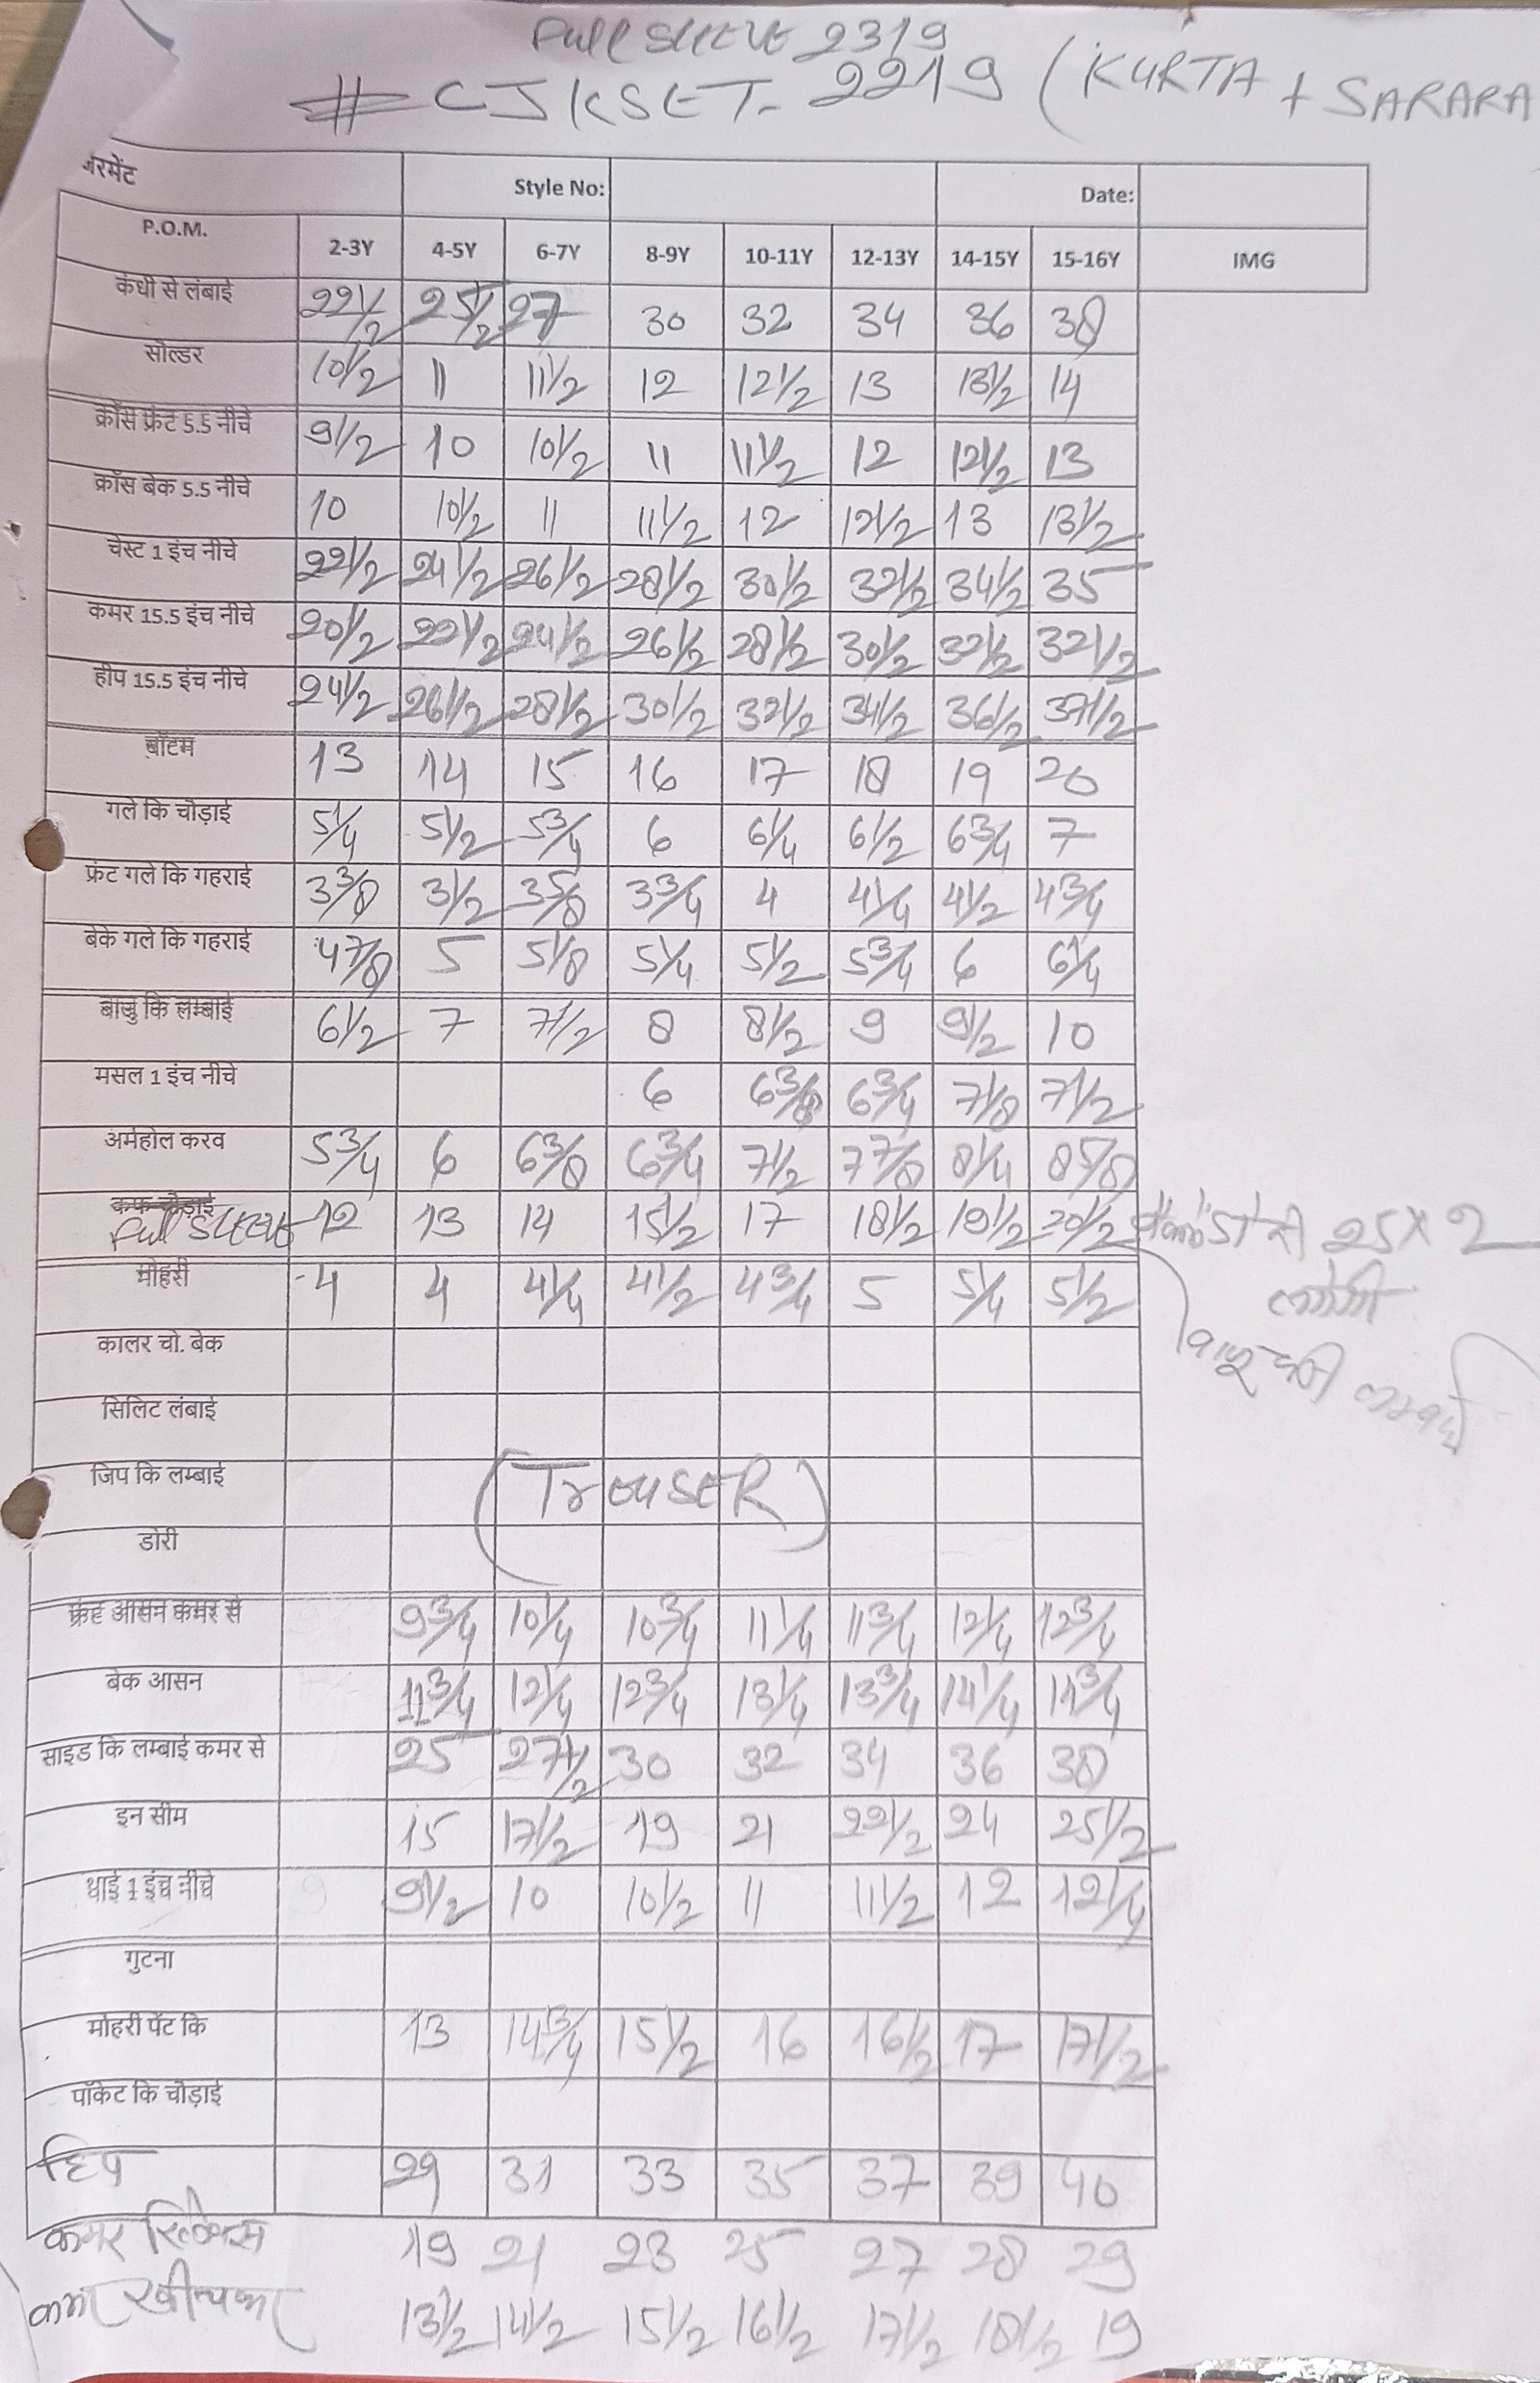 Full SLEEVE 2319
# CJKSET-2219 (KURTA + SARARA
गरमेंट Style No: Date:
P.O.M. 2-3Y 4-5Y 6-7Y 8-9Y 10-11Y 12-13Y 14-15Y 15-16Y IMG
कंधी से लंबाई 22 1/2 25 1/2 27 30 32 34 36 38
सोल्डर 10 1/2 11 11 1/2 12 12 1/2 13 13 1/2 14
क्रॉस फ्रंट 5.5 नीचे 9 1/2 10 10 1/2 11 11 1/2 12 12 1/2 13
क्रॉस बेक 5.5 नीचे 10 10 1/2 11 11 1/2 12 12 1/2 13 13 1/2
चेस्ट 1 इंच नीचे 22 1/2 24 1/2 26 1/2 28 1/2 30 1/2 32 1/2 34 1/2 35
कमर 15.5 इंच नीचे 20 1/2 22 1/2 24 1/2 26 1/2 28 1/2 30 1/2 32 1/2 32 1/2
हीप 15.5 इंच नीचे 24 1/2 26 1/2 28 1/2 30 1/2 32 1/2 34 1/2 36 1/2 37 1/2
बॉटम 13 14 15 16 17 18 19 20
गले कि चौड़ाई 5 1/4 5 1/2 5 3/4 6 6 1/4 6 1/2 6 3/4 7
फ्रंट गले कि गहराई 3 3/8 3 1/2 3 5/8 3 3/4 4 4 1/4 4 1/2 4 3/4
बेके गले कि गहराई 4 7/8 5 5 1/8 5 1/4 5 1/2 5 3/4 6 6 1/4
बाजु कि लम्बाई 6 1/2 7 7 1/2 8 8 1/2 9 9 1/2 10
मसल 1 इंच नीचे 6 6 3/8 6 3/4 7 1/8 7 1/2
अर्महोल करव 5 3/4 6 6 3/8 6 3/4 7 1/2 7 7/8 8 1/4 8 5/8
कफ चौड़ाई
Full SLEEVE 12 13 14 15 1/2 17 18 1/2 19 1/2 20 1/2 25 x 2
मोहरी 4 4 4 1/4 4 1/2 4 3/4 5 5 1/4 5 1/2
बाजू की लम्बाई
कालर चो. बेक
सिलिट लंबाई
जिप कि लम्बाई
(TrouSER)
डोरी
फ्रंट आसन कमर से 9 3/4 10 1/4 10 3/4 11 1/4 11 3/4 12 1/4 12 3/4
बेक आसन 11 3/4 12 1/4 12 3/4 13 1/4 13 3/4 14 1/4 14 3/4
साइड कि लम्बाई कमर से 25 27 1/2 30 32 34 36 38
इन सीम 15 17 1/2 19 21 22 1/2 24 25 1/2
थाई 1 इंच नीचे 9 9 1/2 10 10 1/2 11 11 1/2 12 12 1/4
गुटना
मोहरी पेंट कि 13 14 3/4 15 1/2 16 16 1/2 17 17 1/2
पॉकेट कि चौड़ाई
हिप 29 31 33 35 37 39 40
कमर रिलेक्स 19 21 23 25 27 28 29
कमर खीचकर 13 1/2 14 1/2 15 1/2 16 1/2 17 1/2 18 1/2 19